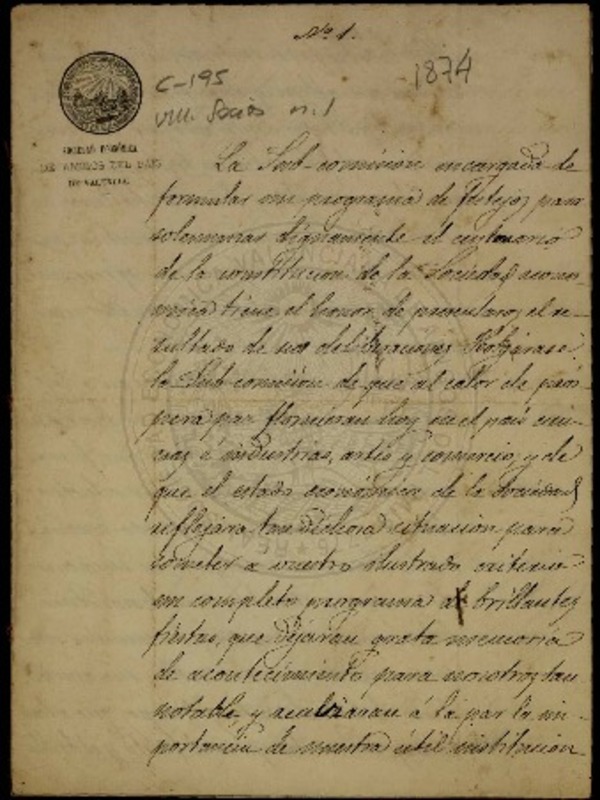 No. 1.
C-195
1874
VIII. Socios n. 1
SOCIEDAD ECONÓMICA
DE AMIGOS DEL PAÍS
DE VALENCIA.
La Sub-comision encargada de
formular un programa de festejos para
solemnizar dignamente el centenario
de la constitucion de la Sociedad econó-
mica tiene el honor de presentaros el re-
sultado de sus deliberaciones. Holgárase
la Sub-comision de que al calor de prós-
pera paz florecieran hoy en el pais
é industrias, artes y comercio, y de
que el estado económico de la Sociedad
reflejára tan dichosa situacion para
someter a vuestro ilustrado criterio
un completo programa de brillantes
fiestas, que dejáran grata memoria
de acontecimiento para nosotros tan
notable, y á la par la im-
portancia de nuestra útil institucion